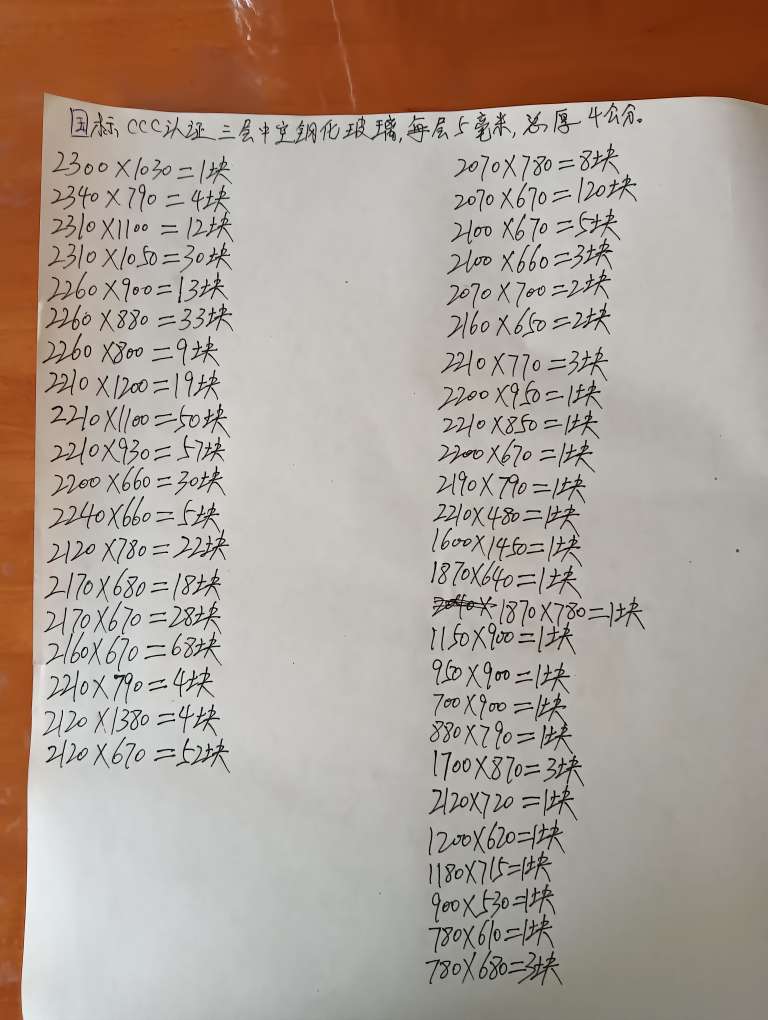 国标CCC认证三层中空钢化玻璃,每层5毫米,总厚4公分。
2300×1030=1块
2340×790=4块
2310×1100=12块
2310×1050=30块
2260×900=13块
2260×880=33块
2260×800=9块
2210×1200=19块
2210×1100=50块
2210×930=57块
2200×660=30块
2240×660=5块
2120×780=22块
2170×680=18块
2170×670=28块
2160×670=68块
2210×790=4块
2120×1380=4块
2120×670=52块
2070×780=8块
2070×670=120块
2100×670=5块
2100×660=3块
2070×700=2块
2160×650=2块
2210×770=3块
2200×950=1块
2210×850=1块
2200×670=1块
2190×790=1块
2210×480=1块
1600×1450=1块
1870×640=1块
1870×780=1块
1150×900=1块
950×900=1块
700×900=1块
880×790=1块
1700×870=3块
2120×720=1块
1200×620=1块
1180×715=1块
900×530=1块
780×610=1块
780×680=3块